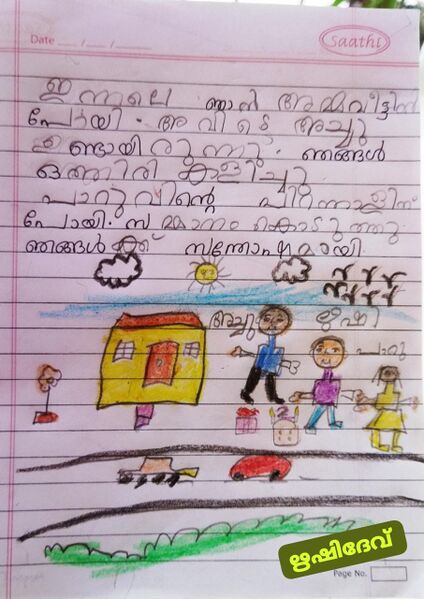 Date
Saathi
ഇന്നലെ ഞാൻ അമ്മവീട്ടിൽ
പോയി. അവിടെ അച്ചു
ഉണ്ടായിരുന്നു. ഞങ്ങൾ
ഒത്തിരി കളിച്ചു
പാറുവിന്റെ പിറന്നാളിന്
പോയി. സമ്മാനം കൊടുത്തു.
ഞങ്ങൾക്ക് സന്തോഷമായി.
അച്ചു ഋഷി
പാറു
2
ഋഷിദേവ്
Page No.